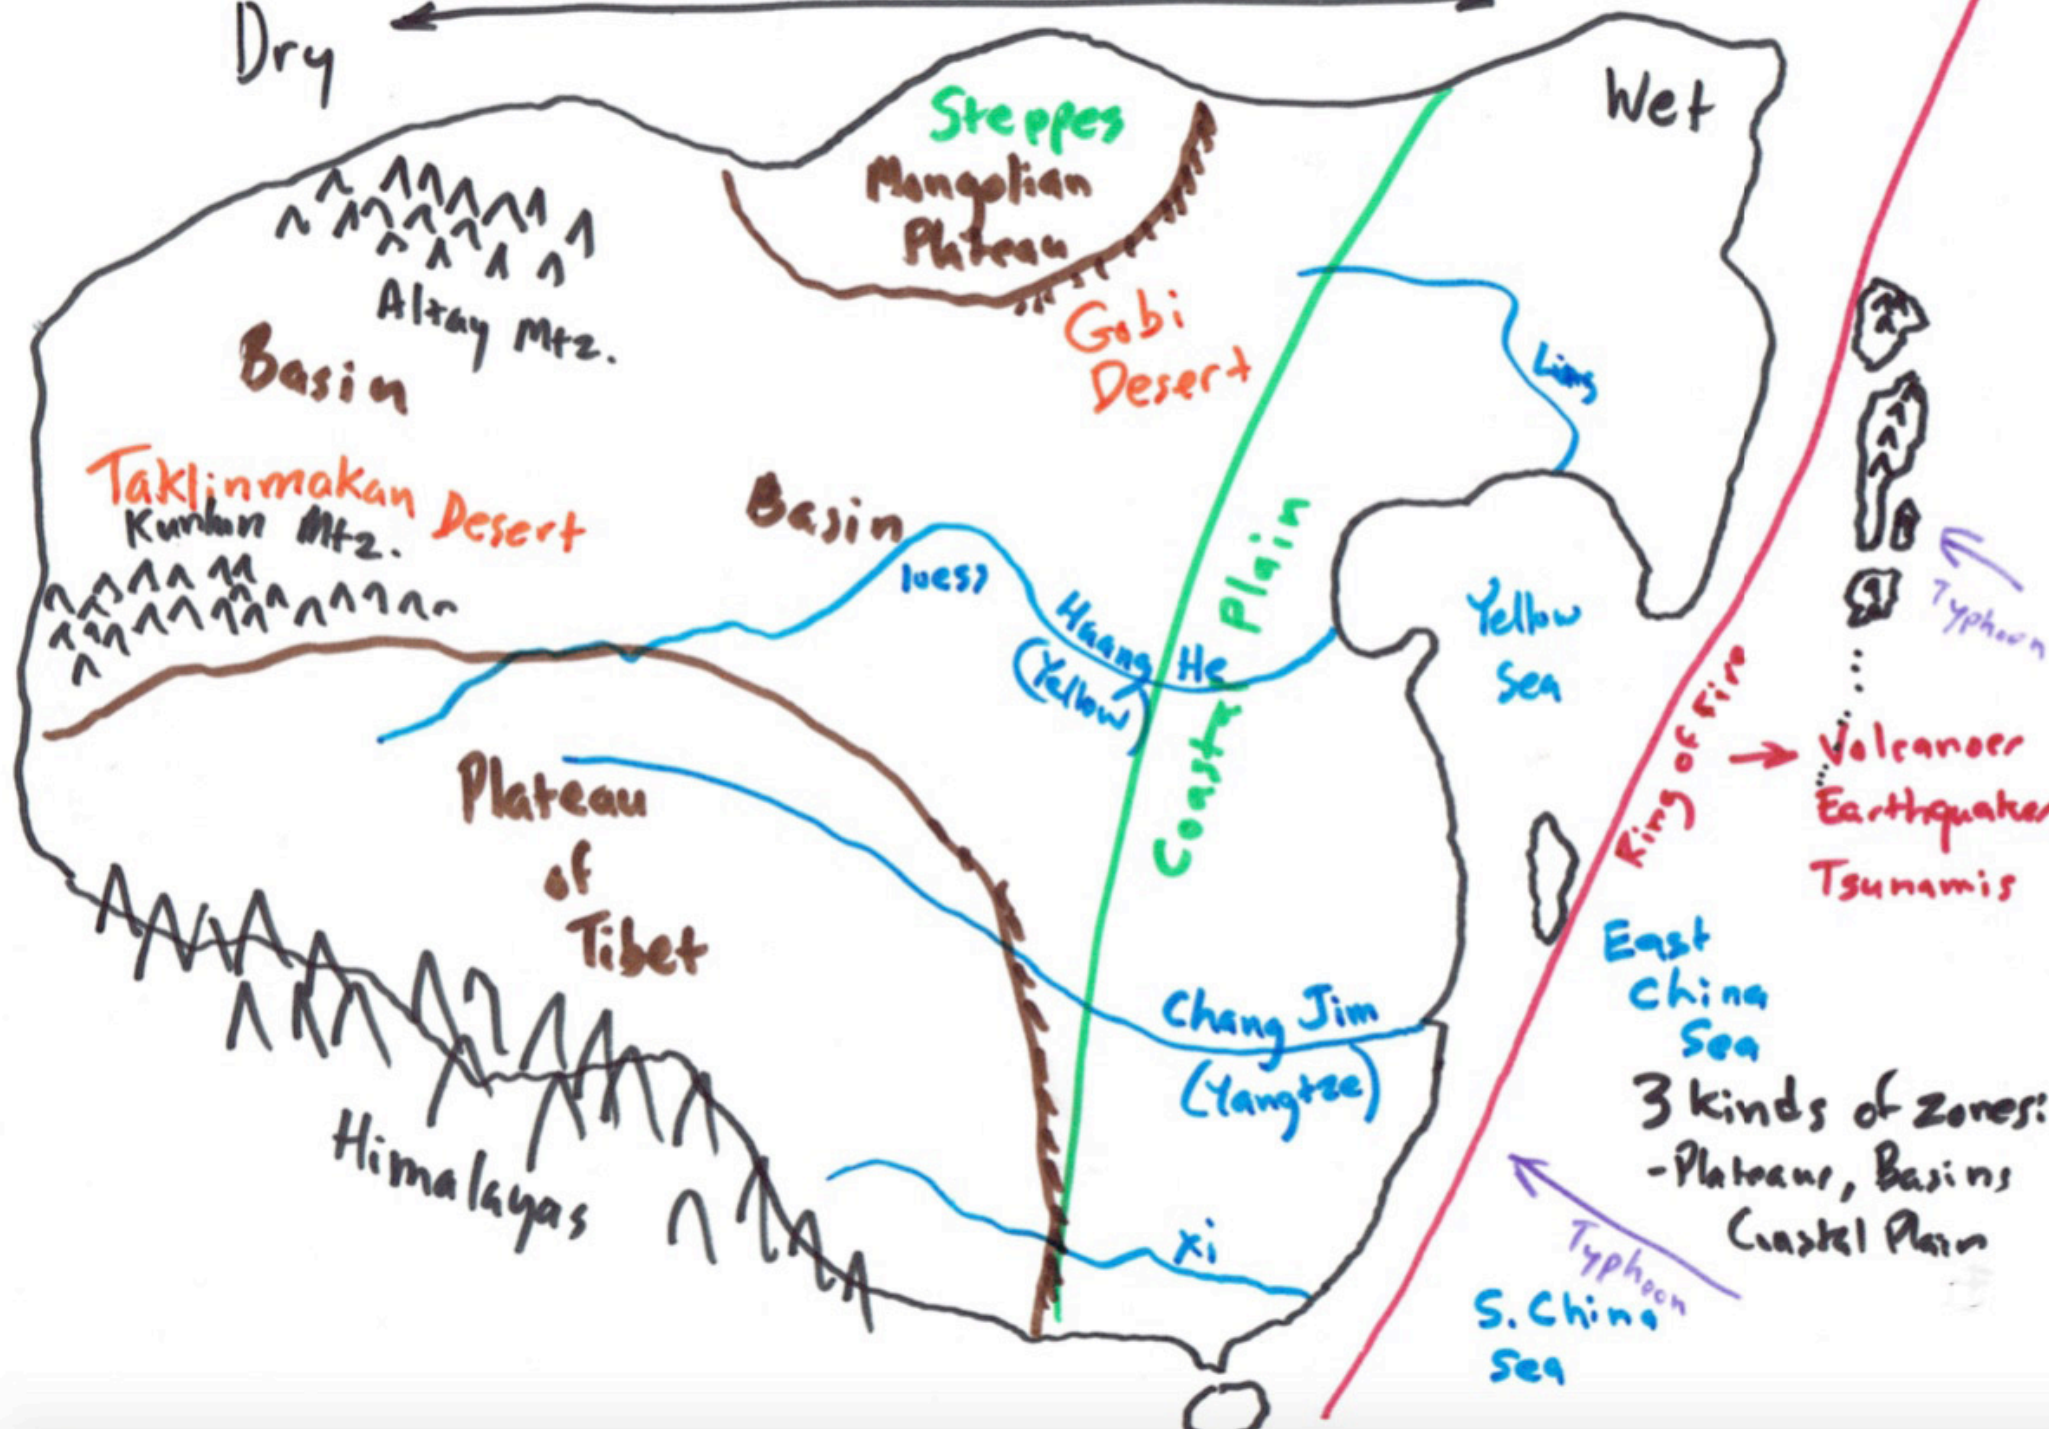 Dry
Wet
Steppes
Mongolian
Plateau
Altay Mtz.
Gobi
Desert
Basin
Liao
Taklinmakan Desert
Kunlun Mtz.
Basin
loess
Huang He
(Yellow)
Coastal Plain
Yellow
Sea
Typhoon
Ring of Fire
Volcanoes
Earthquakes
Tsunamis
Plateau
of
Tibet
East
China
Sea
Chang Jim
(Yangtze)
3 kinds of zones:
-Plateaus, Basins
Coastal Plain
Himalayas
Xi
Typhoon
S. China
Sea